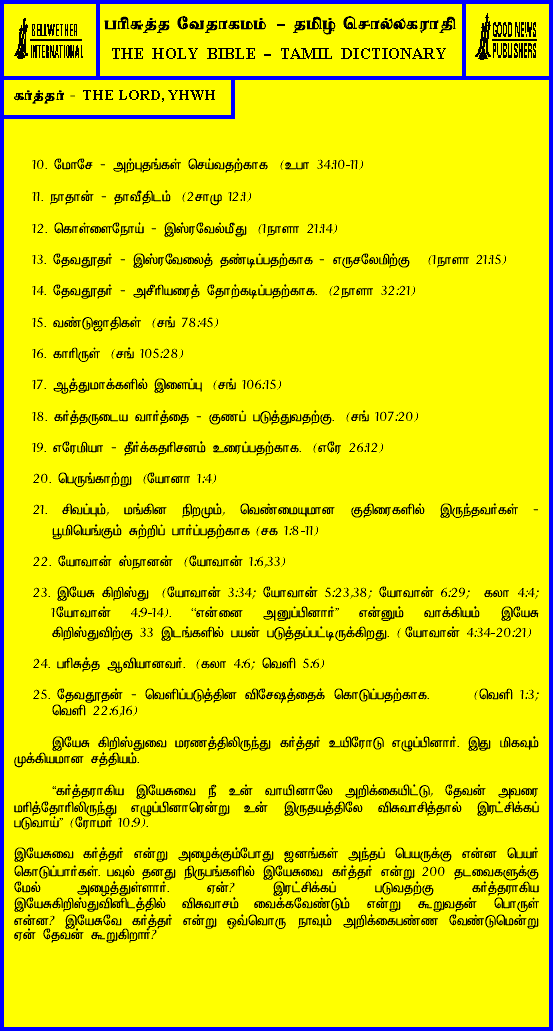 BELLWETHER
INTERNATIONAL
பரிசுத்த வேதாகமம் – தமிழ் சொல்லகராதி
THE HOLY BIBLE – TAMIL DICTIONARY
GOOD NEWS
PUBLISHERS
கர்த்தர் - THE LORD, YHWH
10. மோசே - அற்புதங்கள் செய்வதற்காக (உபா 34:10-11)
11. நாதான் - தாவீதிடம் (2சாமு 12:1)
12. கொள்ளைநோய் - இஸ்ரவேல்மீது (1நாளா 21:14)
13. தேவதூதர் - இஸ்ரவேலைத் தண்டிப்பதற்காக - எருசலேமிற்கு (1நாளா 21:15)
14. தேவதூதர் - அசீரியரைத் தோற்கடிப்பதற்காக. (2நாளா 32:21)
15. வண்டுஜாதிகள் (சங் 78:45)
16. காரிருள் (சங் 105:28)
17. ஆத்துமாக்களில் இளைப்பு (சங் 106:15)
18. கர்த்தருடைய வார்த்தை - குணப் படுத்துவதற்கு. (சங் 107:20)
19. எரேமியா - தீர்க்கதரிசனம் உரைப்பதற்காக. (எரே 26:12)
20. பெருங்காற்று (யோனா 1:4)
21. சிவப்பும், மங்கின நிறமும், வெண்மையுமான குதிரைகளில் இருந்தவர்கள் -
பூமியெங்கும் சுற்றிப் பார்ப்பதற்காக (சக 1:8-11)
22. யோவான் ஸ்நானன் (யோவான் 1:6,33)
23. இயேசு கிறிஸ்து (யோவான் 3:34; யோவான் 5:23,38; யோவான் 6:29; கலா 4:4;
1யோவான் 4:9-14). "என்னை அனுப்பினார்" என்னும் வாக்கியம் இயேசு
கிறிஸ்துவிற்கு 33 இடங்களில் பயன் படுத்தப்பட்டிருக்கிறது. ( யோவான் 4:34-20:21)
24. பரிசுத்த ஆவியானவர். (கலா 4:6; வெளி 5:6)
25. தேவதூதன் - வெளிப்படுத்தின விசேஷத்தைக் கொடுப்பதற்காக. (வெளி 1:3;
வெளி 22:6,16)
இயேசு கிறிஸ்துவை மரணத்திலிருந்து கர்த்தர் உயிரோடு எழுப்பினார். இது மிகவும்
முக்கியமான சத்தியம்.
"கர்த்தராகிய இயேசுவை நீ உன் வாயினாலே அறிக்கையிட்டு, தேவன் அவரை
மரித்தோரிலிருந்து எழுப்பினாரென்று உன் இருதயத்திலே விசுவாசித்தால் இரட்சிக்கப்
படுவாய்" (ரோமர் 10:9).
இயேசுவை கர்த்தர் என்று அழைக்கும்போது ஜனங்கள் அந்தப் பெயருக்கு என்ன பெயர்
கொடுப்பார்கள். பவுல் தனது நிருபங்களில் இயேசுவை கர்த்தர் என்று 200 தடவைகளுக்கு
மேல் அழைத்துள்ளார். ஏன்? இரட்சிக்கப் படுவதற்கு கர்த்தராகிய
இயேசுகிறிஸ்துவினிடத்தில் விசுவாசம் வைக்கவேண்டும் என்று கூறுவதன் பொருள்
என்ன? இயேசுவே கர்த்தர் என்று ஒவ்வொரு நாவும் அறிக்கைபண்ண வேண்டுமென்று
ஏன் தேவன் கூறுகிறார்?